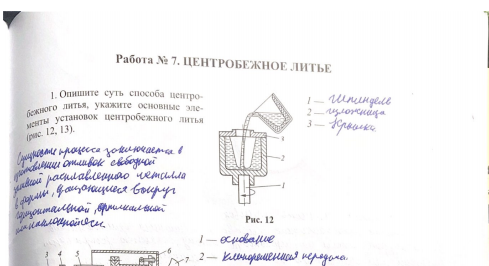 Работа № 7. ЦЕНТРОБЕЖНОЕ ЛИТЬЕ
1. Опишите суть способа центро-
бежного литья, укажите основные эле-
менты установок центробежного литья
(рис. 12, 13).
Сущность процесса заключается в
изготовлении отливок свободной
заливкой расплавленного металла
в формы, вращающиеся вокруг
горизонтальной, вертикальной
или наклонной оси.
1 — Шпиндель
2 — изложница
3 — Крышка
3
2
1
Рис. 12
1 — основание
2 — клиноременная передача.
3 4 5 6
7